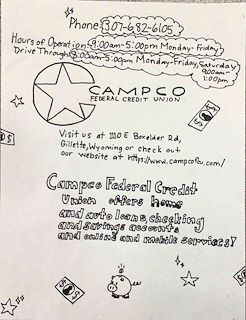 Phone: 307-682-6105
Hours of Operation: 9:00am-5:00pm Monday-Friday
Drive Through: 8:00am-5:00pm Monday-Friday, Saturday
9:00am-
1:00pm
CAMPCO
FEDERAL CREDIT UNION
Visit us at 1110 E Boxelder Rd,
Gillette, Wyoming or check out
our website at https://www.campcofcu.com/
Campco Federal Credit
Union offers home
and auto loans, checking
and savings accounts,
and online and mobile services!